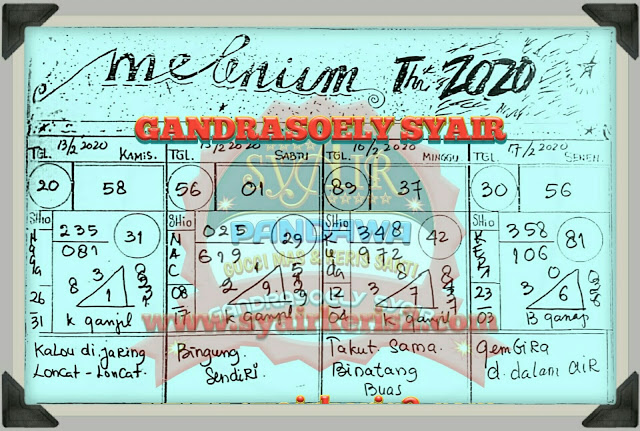 melenium Thn 2020
GANDRASOELY SYAIR
TGL. 13/2 2020 KAMIS.
20 58
SHIO
235 31
081
8 3 1
26
31 K ganjil
KaLau di jaring
Loncat-Loncat.
TGL. 2020 SABTU
56 01
SHIO
025 29
619
2 9
08
17 K ganjil
Bingung.
SendiRi.
TGL. 16/2 2020 MINGGU
89 37
SHIO
348 42
972
3 8 7
12
04 K ganjil
Takut. Sama.
Binatang
Buas
TGL. 17/2 2020 SENEN.
30 56
SHIO
358 81
106
3 0 6
23
03 B ganap
gemGiRa
d. dalam aiR
SYAIR
PANDAWA
GUCCI MAS & KERIS SAKTI
GANDRASOELY SYAIR